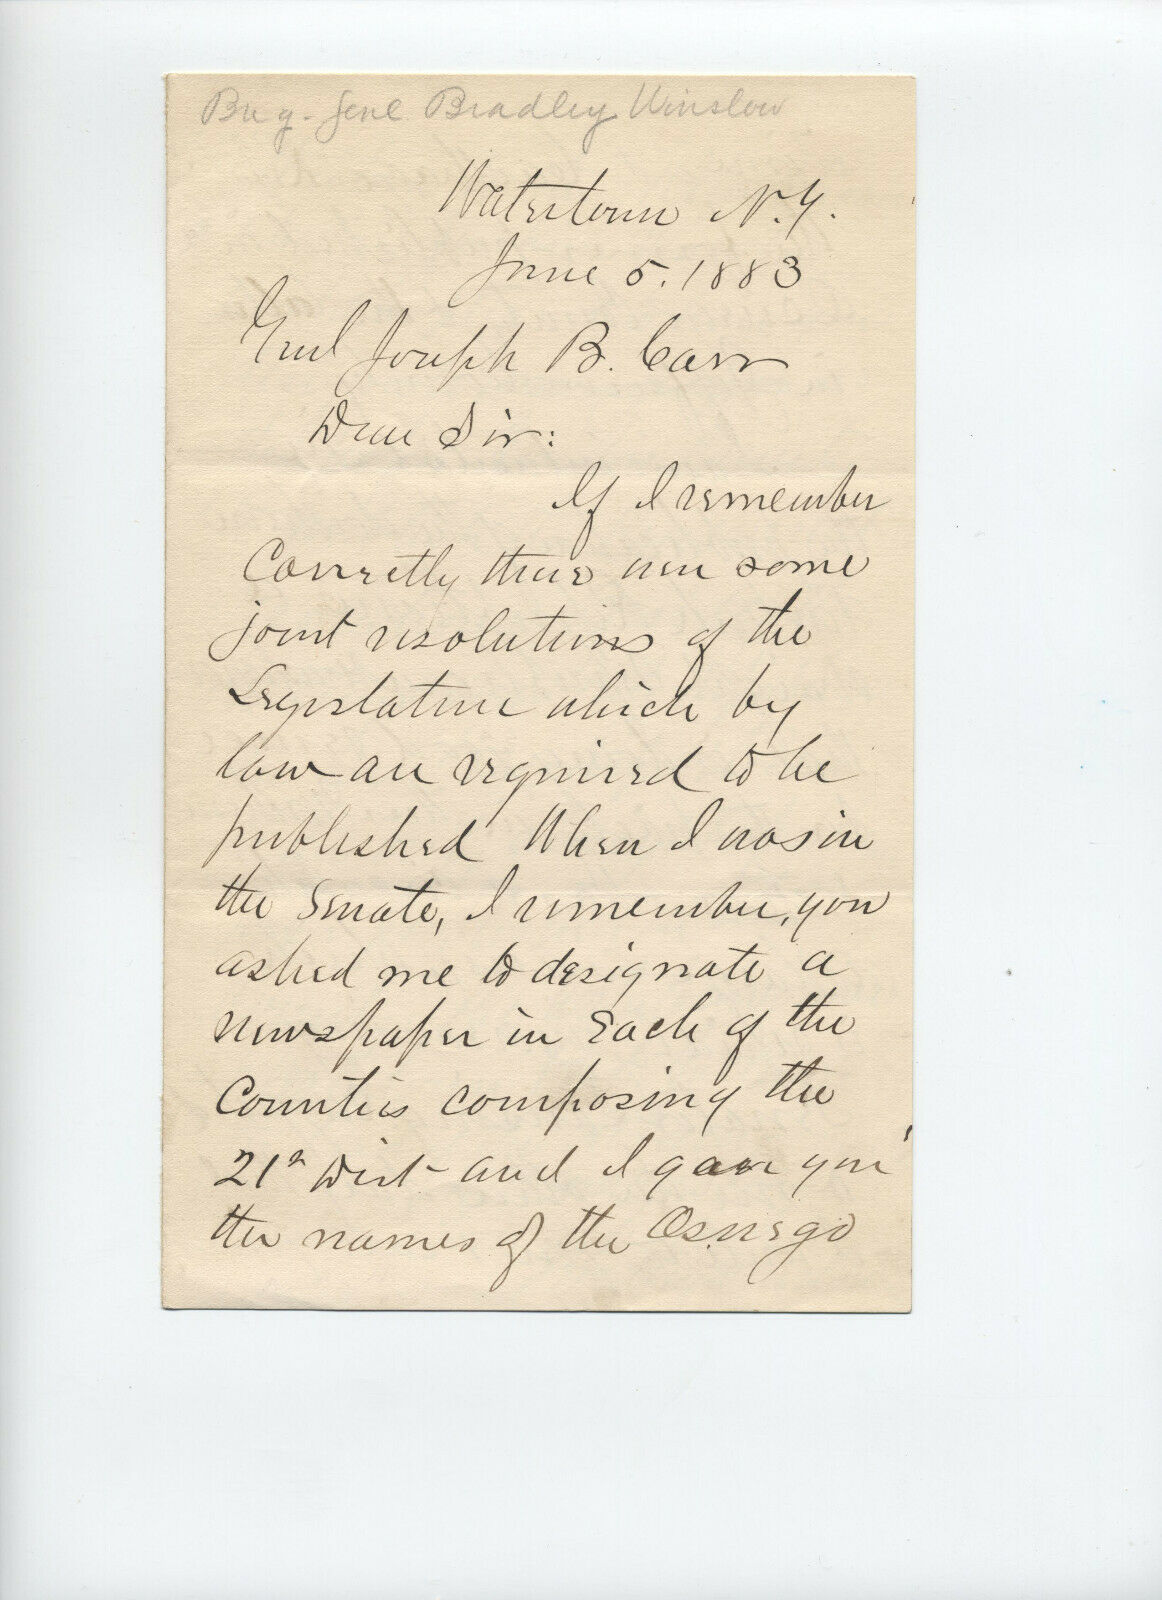 Brig. Genl Bradley Winslow
Watertown N.Y.
June 5. 1883
Genl Joseph B. Carr
Dear Sir:
If I remember
Correctly there are some
joint resolutions of the
Legislature which by
law are required to be
published When I was in
the Senate, I remember, you
asked me to designate a
newspaper in Each of the
Counties composing the
21st Dist and I gave you
the names of the Oswego